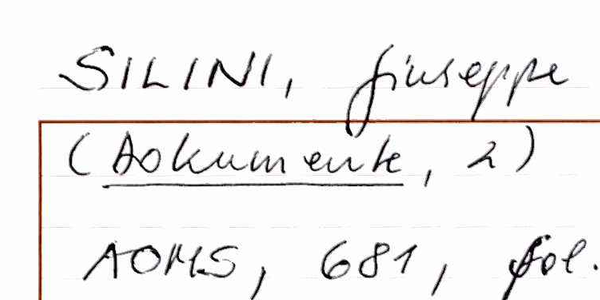 SILINI, Giuseppe
(Dokumente, 2)
AOMS, 681, fol.